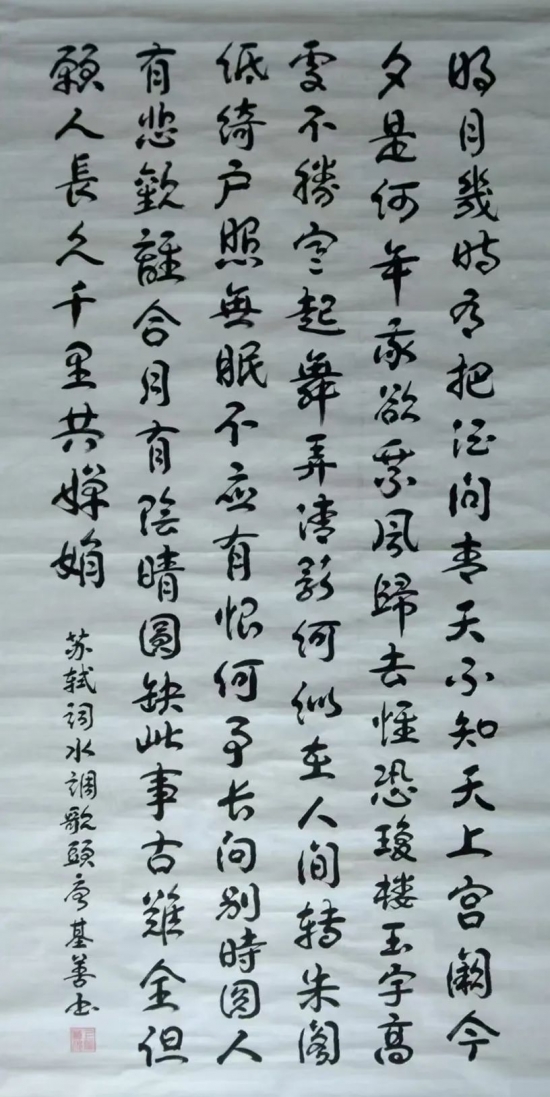 明月幾時有把酒問青天不知天上宮闕今
夕是何年我欲乘風歸去惟恐瓊楼玉宇高
處不勝寒起舞弄清影何似在人間轉朱閣
低綺户照無眠不應有恨何事长向别時圆人
有悲歡離合月有陰晴圓缺此事古難全但
願人長久千里共嬋娟
苏軾词水調歌頭唐基善书